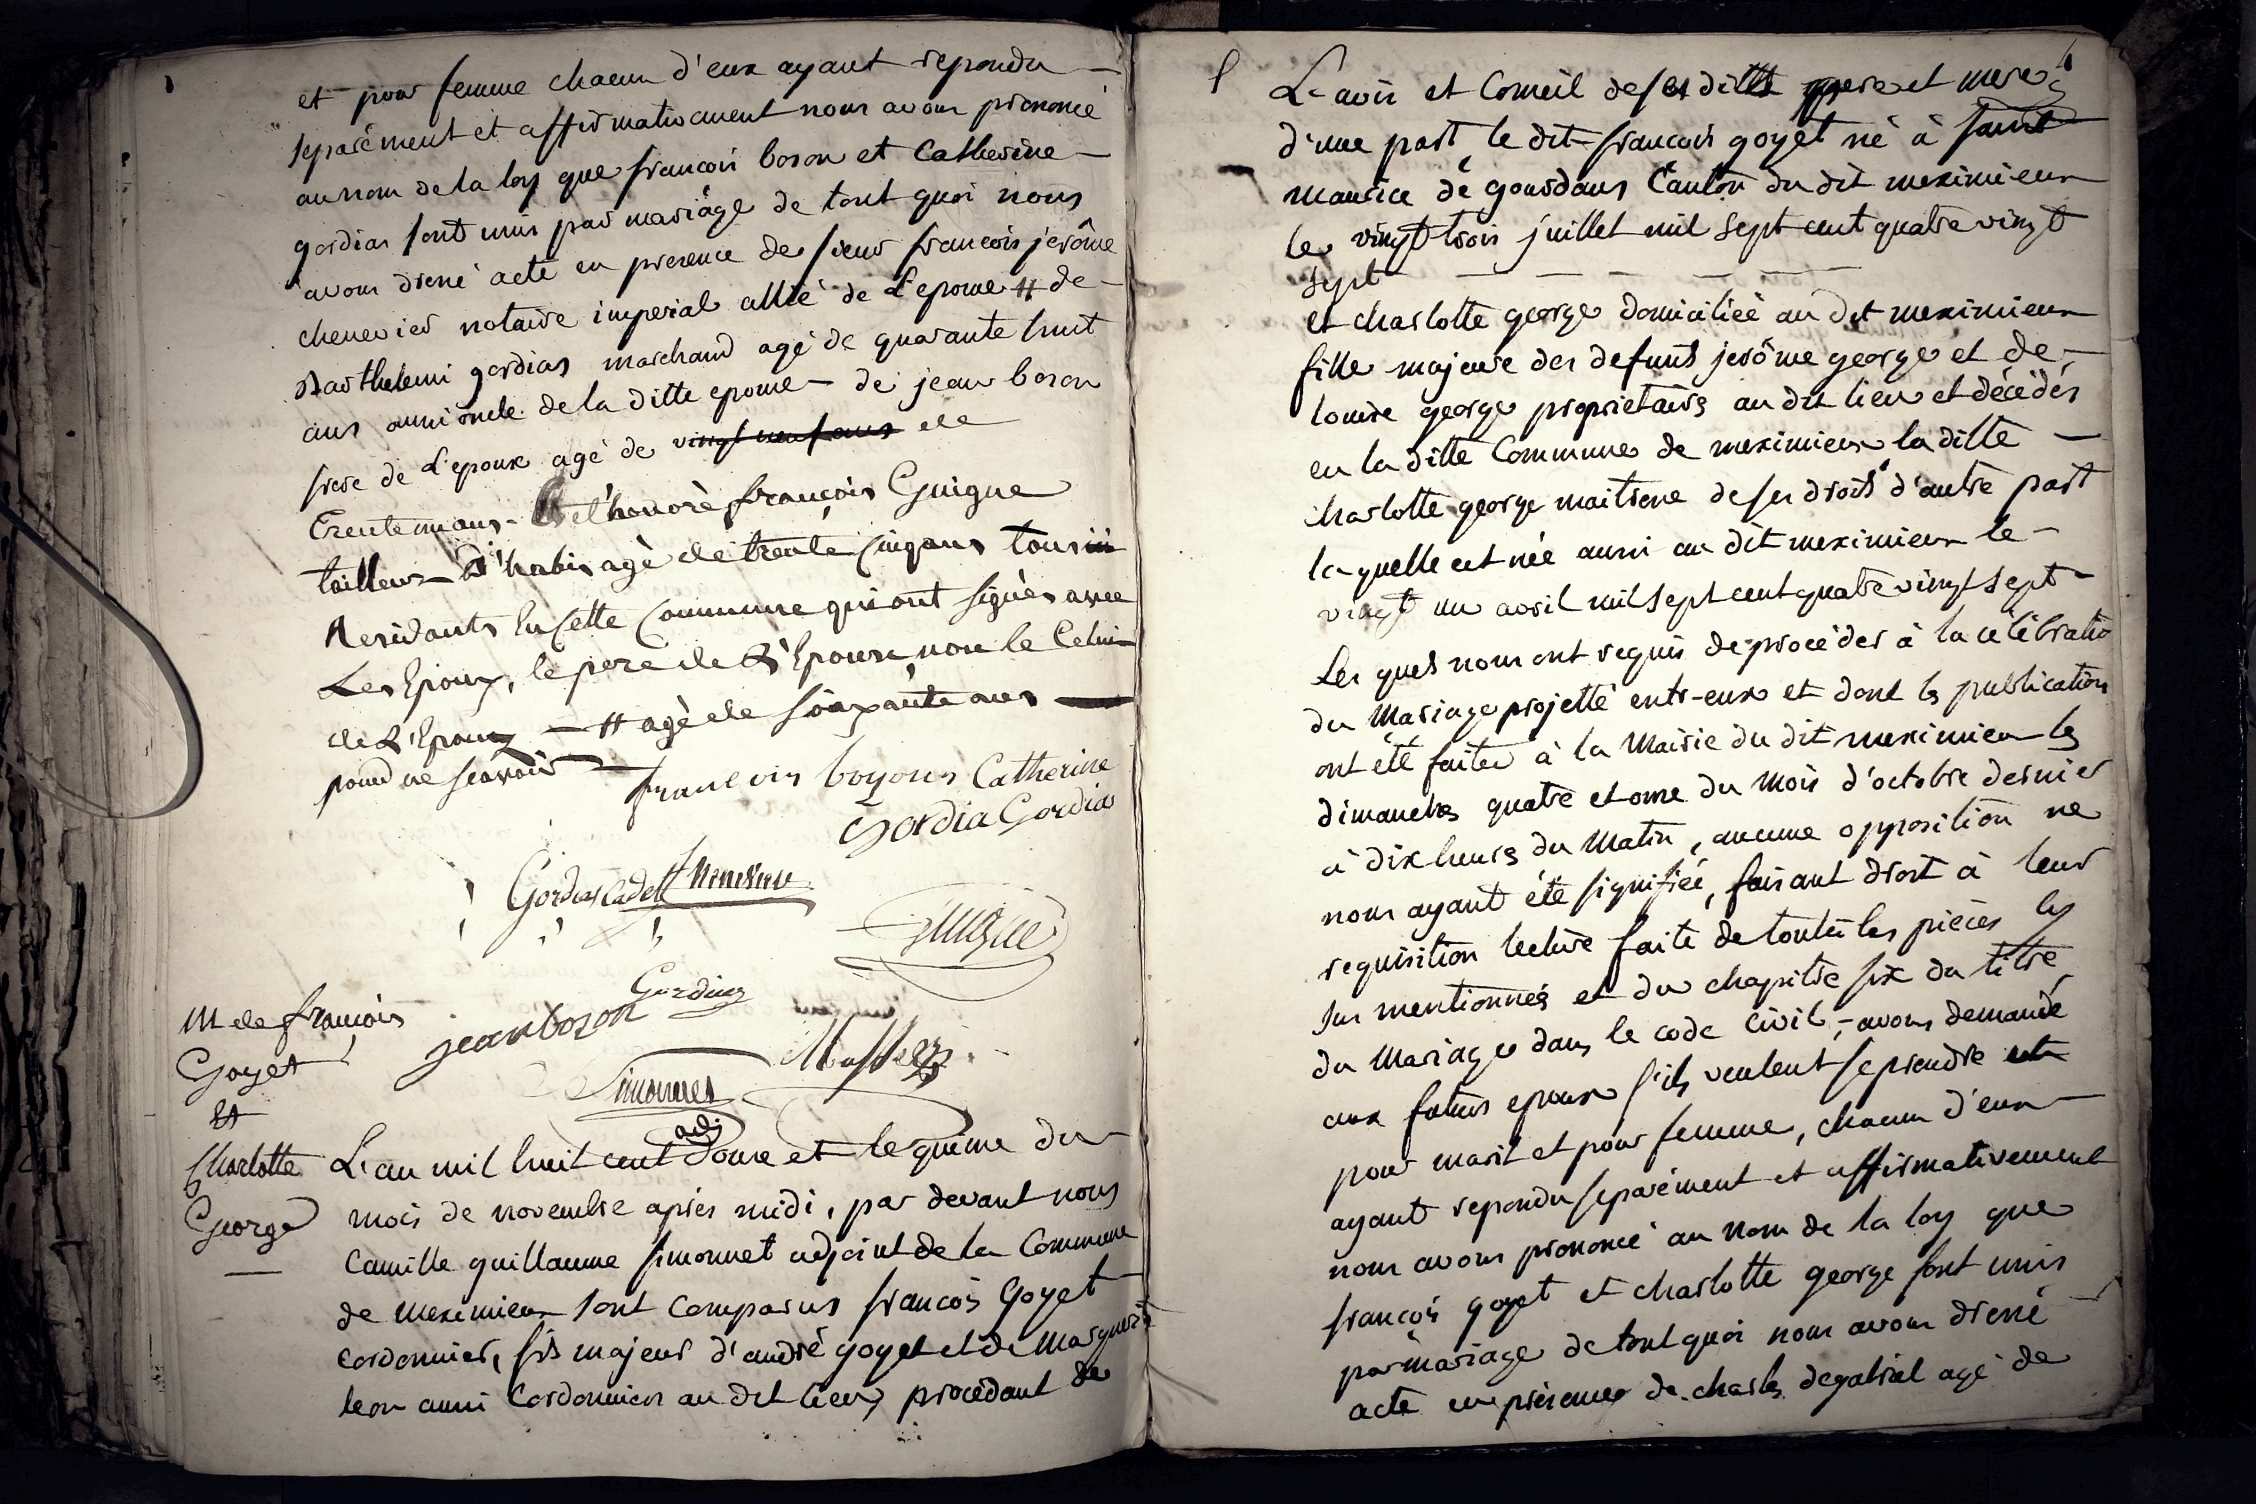 et pour femme chacun d'eux ayant repondu
separément et affirmativement nous avons prononcé
au nom de la loy que françois boson et Catherine
gordias sont unis par mariage de tout quoi nous
avons dressé acte en presence de sieur francois jerôme
chenevier notaire imperial allié de L'epouse # de
Barthelemi gordias marchand agé de quarante huit
ans aussi oncle de la ditte epouse de jean boson
frere de L'epoux agé de vingt neuf ans de
Trente un ans - et honoré françois Guigue
tailleur d'habis agè de trente cinq ans tous
Residants En Cette Commune qui ont signès avec
Les Epoux, le pere de L'Epouse non le Celui
de L'Epoux # agè de soixante ans
pour ne scavoir
francois boyson Catherine
Gordia Gordia
Gordias Cadet Chenevier
Guigue
Gordias
jean boson
Simonnet
adj
M de françois
Goyet
Et
Charlotte
George
L'an mil huit cent douze et le quinze du
mois de novembre après midi, par devant nous
Camille guillaume simonnet adjoint de la Commune
de meximieux sont comparus francois Goyet
Cordonnier, fils majeur d'andré goyet et de Marguerite
leon aussi Cordonnier au dit lieu, procédant de
L'avis et Conseil de ses ditts pere et mere
d'une part, le dit francois goyet né à saint
maurice de gourdans Canton du dit meximieux
le vingt trois juillet mil sept cent quatre vingt
sept
et charlotte george domiciliée au dit meximieux
fille majeure des defunts jerôme george et de
louise george proprietaires au dit lieu et décédés
en la ditte Commune de meximieux la ditte
charlotte george maitresse de ses droits d'autre part
la quelle est née aussi au dit meximieux le
vingt un avril mil sept cent quatre vingt sept
Les quels nous ont requis de procéder à la célébration
du Mariage projetté entr-eux et dont les publications
ont été faites à la Mairie du dit meximieux les
dimanches quatre et onze du mois d'octobre dernier
à dix heures du Matin, aucune opposition ne
nous ayant été signifiée, faisant droit à leur
requisition lecture faite de toutes les pièces cy
sus mentionnés et du chapitre six du titre
du Mariage dans le code Civil, avons demandé
aux futurs epoux s'ils veulent se prendre
pour mari et pour femme, chacun d'eux
ayant repondu separément et affirmativement
nous avons prononcé au nom de la loy que
françois goyet et charlotte george sont unis
par mariage de tout quoi nous avons dressé
acte en présence de charles degabriel agé de